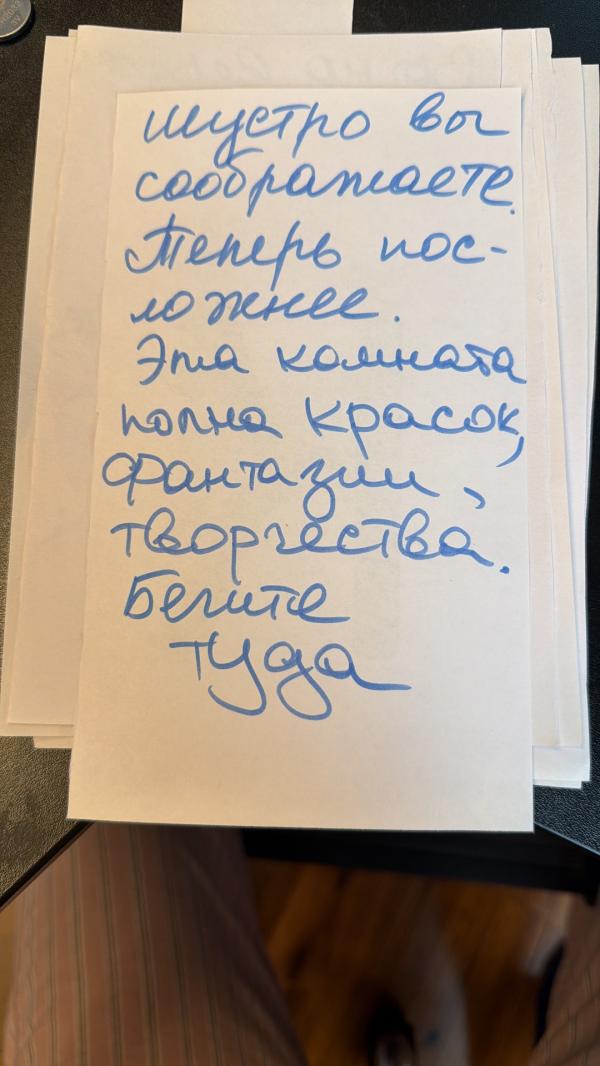 шустро вы
соображаете.
Теперь пос-
ложнее.
Эта комната
полна красок,
фантазии,
творчества.
Бегите
туда